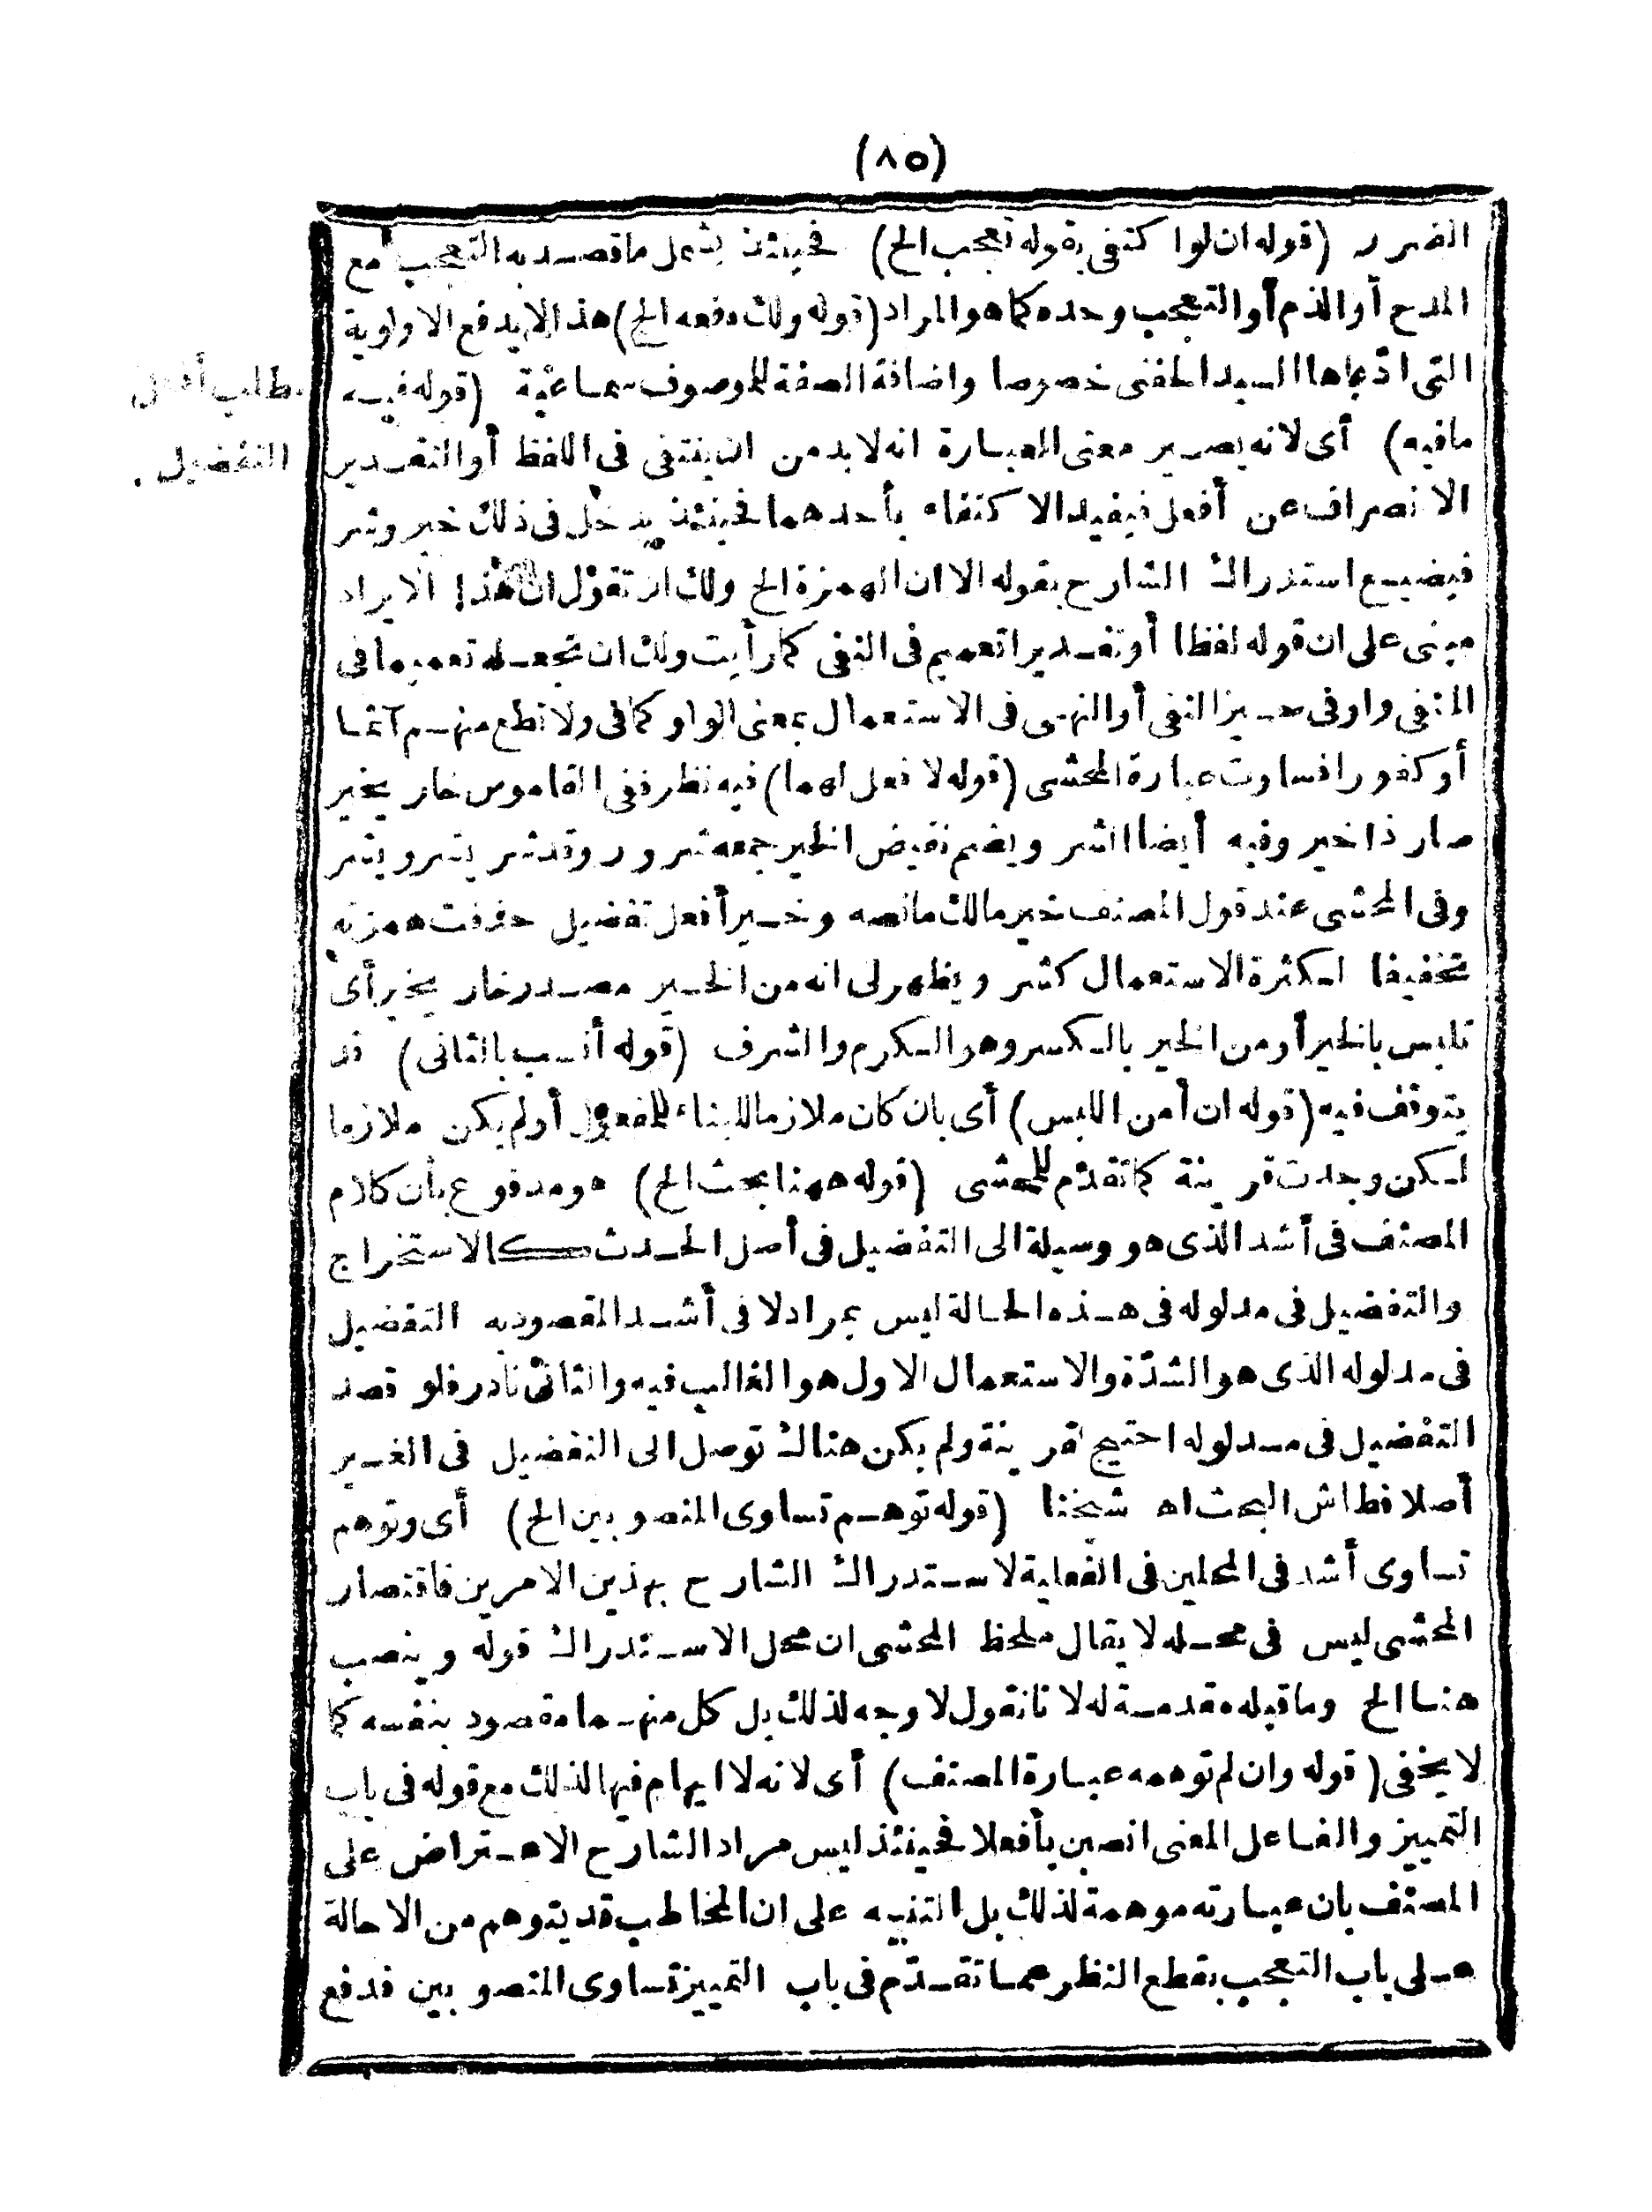 (٨٥)
الضرر (قوله ان لو اكتفى بقوله تعجب الخ) فحينئذ يشمل ما قصد به التعجب مع
المدح أو الذم أو التعجب وحده كما هو المراد (قوله ولك دفعه الخ) هذا لا يدفع الاولوية
التى ادّعاها السيد الحفنى خصوصا واضافة الصفة للموصوف سماعية (قوله فيه
مافيه) أى لانه يصير معنى العبارة انه لا بد من ان ينتفى فى اللفظ أو التقدير
الانصراف عن أفعل فيفيد الاكتفاء بأحدهما فحينئذ يدخل فى ذلك خير وشر
فيضيع استدراك الشارح بقوله الا ان الهمزة الخ ولك ان تقول ان هذا الايراد
مبنى على ان قوله لفظا أو تقديرا تعميم فى النفى كما رأيت ولك ان تجعله تعميما فى
المنفى واو فى حيز النفى أو النهى فى الاستعمال بمعنى الواو كما فى ولا تطع منهم آثما
أو كفورا فساوت عبارة المحشى (قوله لا فعل لهما) فيه نظر ففى القاموس خار يخير
صار ذا خير وفيه أيضا الشر ويضم نقيض الخير جمعه شرور وقد شر يشر ويشر
وفى المحشى عند قول المصنف خير مالك مانصه وخير أفعل تفضيل حذفت همزته
تخفيفا لكثرة الاستعمال كشر ويظهر لى انه من الخير مصدر خار يخير أى
تلبس بالخير أو من الخير بالكسر وهو الكرم والشرف (قوله أنسب بالثانى) قد
يتوقف فيه (قوله ان أمن اللبس) أى بان كان ملازما للبناء للمفعول أو لم يكن ملازما
لكن وجدت قرينة كما تقدّم للمحشى (قوله ههنا بحث الخ) هو مدفوع بأن كلام
المصنف فى أشد الذى هو وسيلة الى التفضيل فى أصل الحدث كالاستخراج
والتفضيل فى مدلوله فى هذه الحالة ليس بمراد لا فى أشد المقصود به التفضيل
فى مدلوله الذى هو الشدّة والاستعمال الاول هو الغالب فيه والثانى نادر فلو قصد
التفضيل فى مدلوله احتيج لقرينة ولم يكن هناك توصل الى التفضيل فى الغير
أصلا فطاش البحث اه شيخنا (قوله توهم تساوى المنصوبين الخ) أى وتوهم
تساوى أشد فى المحلين فى الفعلية لاستدراك الشارح بهذين الامرين فاقتصار
المحشى ليس فى محله لا يقال ملحظ المحشى ان محل الاستدراك قوله وينصب
هنا الخ وما قبله مقدمة له لا نانقول لا وجه لذلك بل كل منهما مقصود بنفسه كما
لا يخفى (قوله وان لم توهمه عبارة المصنف) أى لانه لا ايهام فيها لذلك مع قوله فى باب
التمييز والفاعل المعنى انصبن بأفعلا فحينئذ ليس مراد الشارح الاعتراض على
المصنف بان عبارته موهمة لذلك بل التنبيه على ان المخاطب قد يتوهم من الاحالة
على باب التعجب بقطع النظر عما تقدّم فى باب التمييز تساوى المنصوبين فدفع
مطلب أفعل
التفضيل .